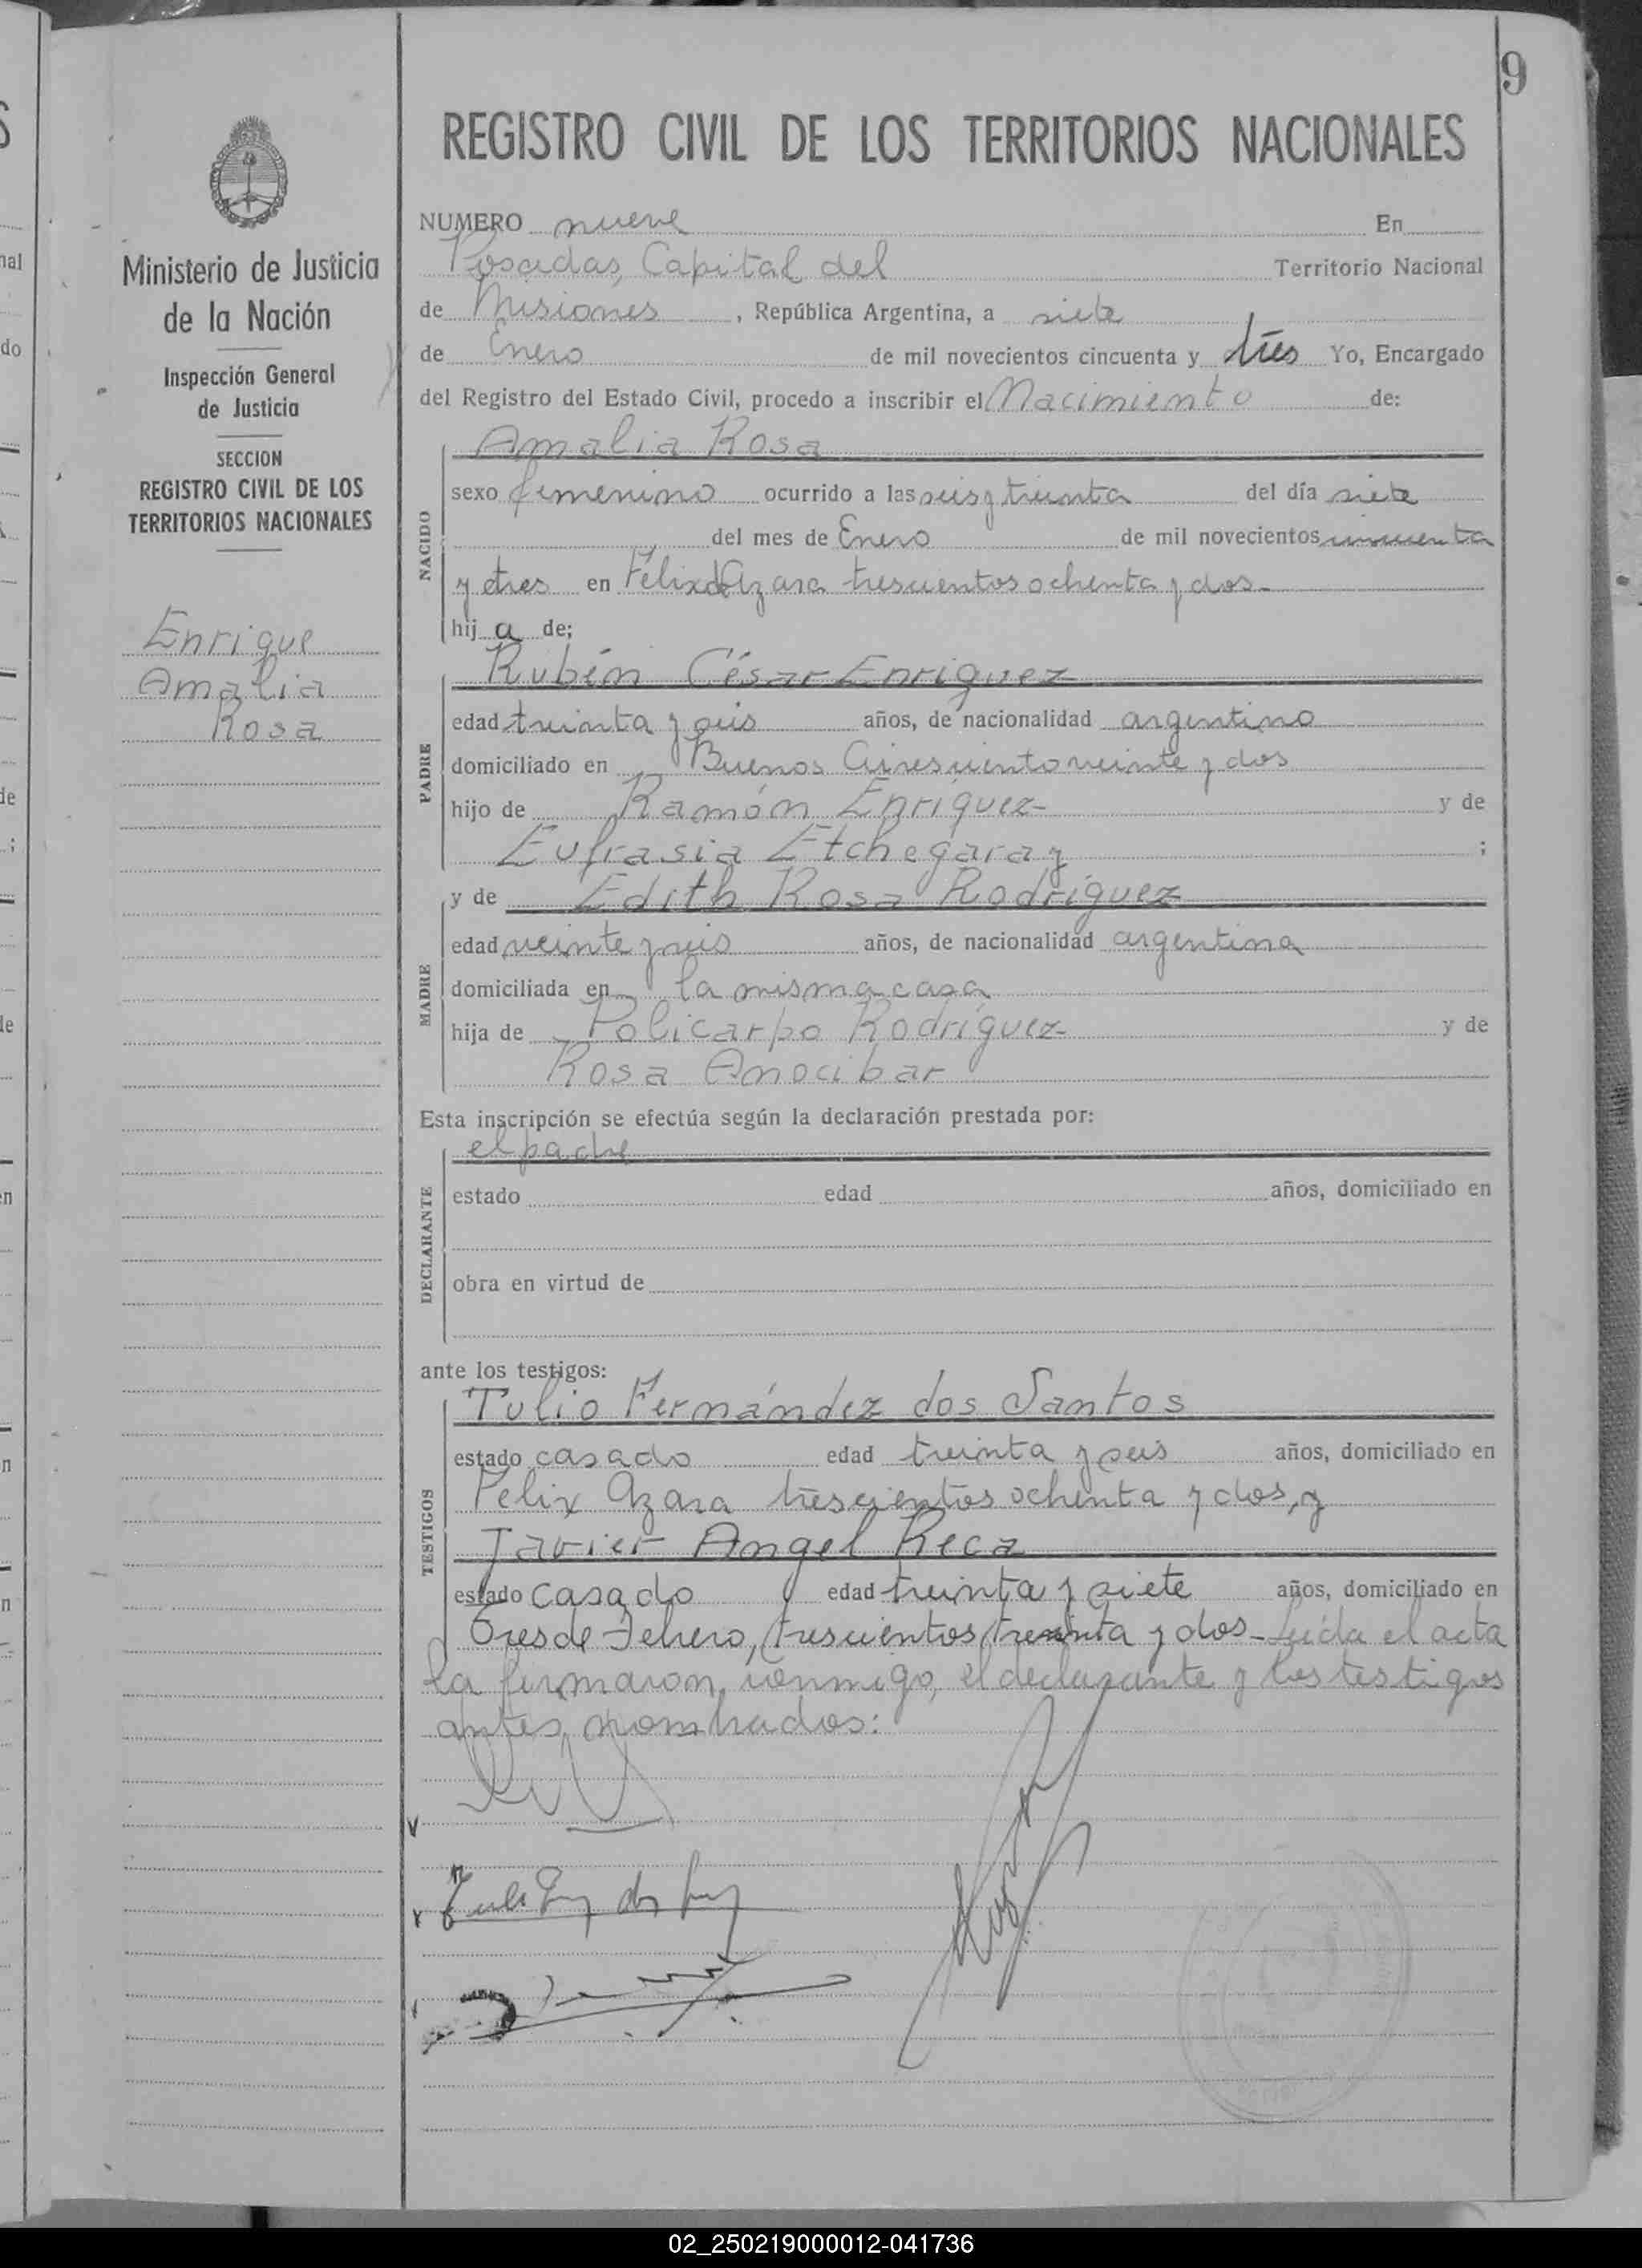 9
REGISTRO CIVIL DE LOS TERRITORIOS NACIONALES
Ministerio de Justicia
de la Nación
Inspección General
de Justicia
SECCION
REGISTRO CIVIL DE LOS
TERRITORIOS NACIONALES
Enrique
Amalia
Rosa
NUMERO nueve En
Posadas, Capital del Territorio Nacional
de Misiones, República Argentina, a siete
de Enero de mil novecientos cincuenta y tres Yo, Encargado
del Registro del Estado Civil, procedo a inscribir el Nacimiento de:
NACIDO
Amalia Rosa
sexo femenino ocurrido a las seis y treinta del día siete
del mes de Enero de mil novecientos cincuenta
y tres en Félix de Azara trescientos ochenta y dos-
hij a de;
PADRE
Rubén César Enriquez
edad treinta y seis años, de nacionalidad argentino
domiciliado en Buenos Aires ciento veinte y dos
hijo de Ramón Enriquez- y de
Eufrasia Etchegaray ;
MADRE
y de Edith Rosa Rodríguez
edad veinte y seis años, de nacionalidad argentina
domiciliada en la misma casa
hija de Policarpo Rodríguez- y de
Rosa Anocibar
Esta inscripción se efectúa según la declaración prestada por:
DECLARANTE
el padre
estado edad años, domiciliado en
obra en virtud de
ante los testigos:
TESTIGOS
Tulio Fernández dos Santos
estado casado edad treinta y seis años, domiciliado en
Felix Azara trescientos ochenta y dos, y
Javier Angel Reca
estado casado edad treinta y siete años, domiciliado en
Tres de Febrero, trescientos treinta y dos- Leída el acta
la firmaron, conmigo, el declarante y los testigos
antes nombrados:
02_250219000012-041736